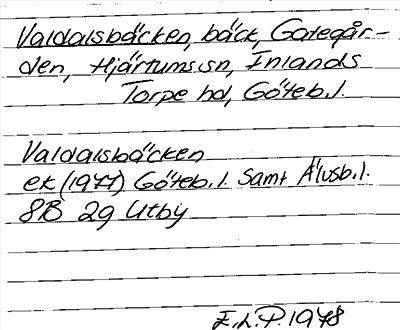 Valdalsbäcken, bäck, Gategår-
den, Hjärtums sn, Inlands
Torpe hd, Göteb. l.
Valdalsbäcken
ek (1977) Göteb. l. samt Älvsb. l.
8B 2g Utby
E.L.P. 1978